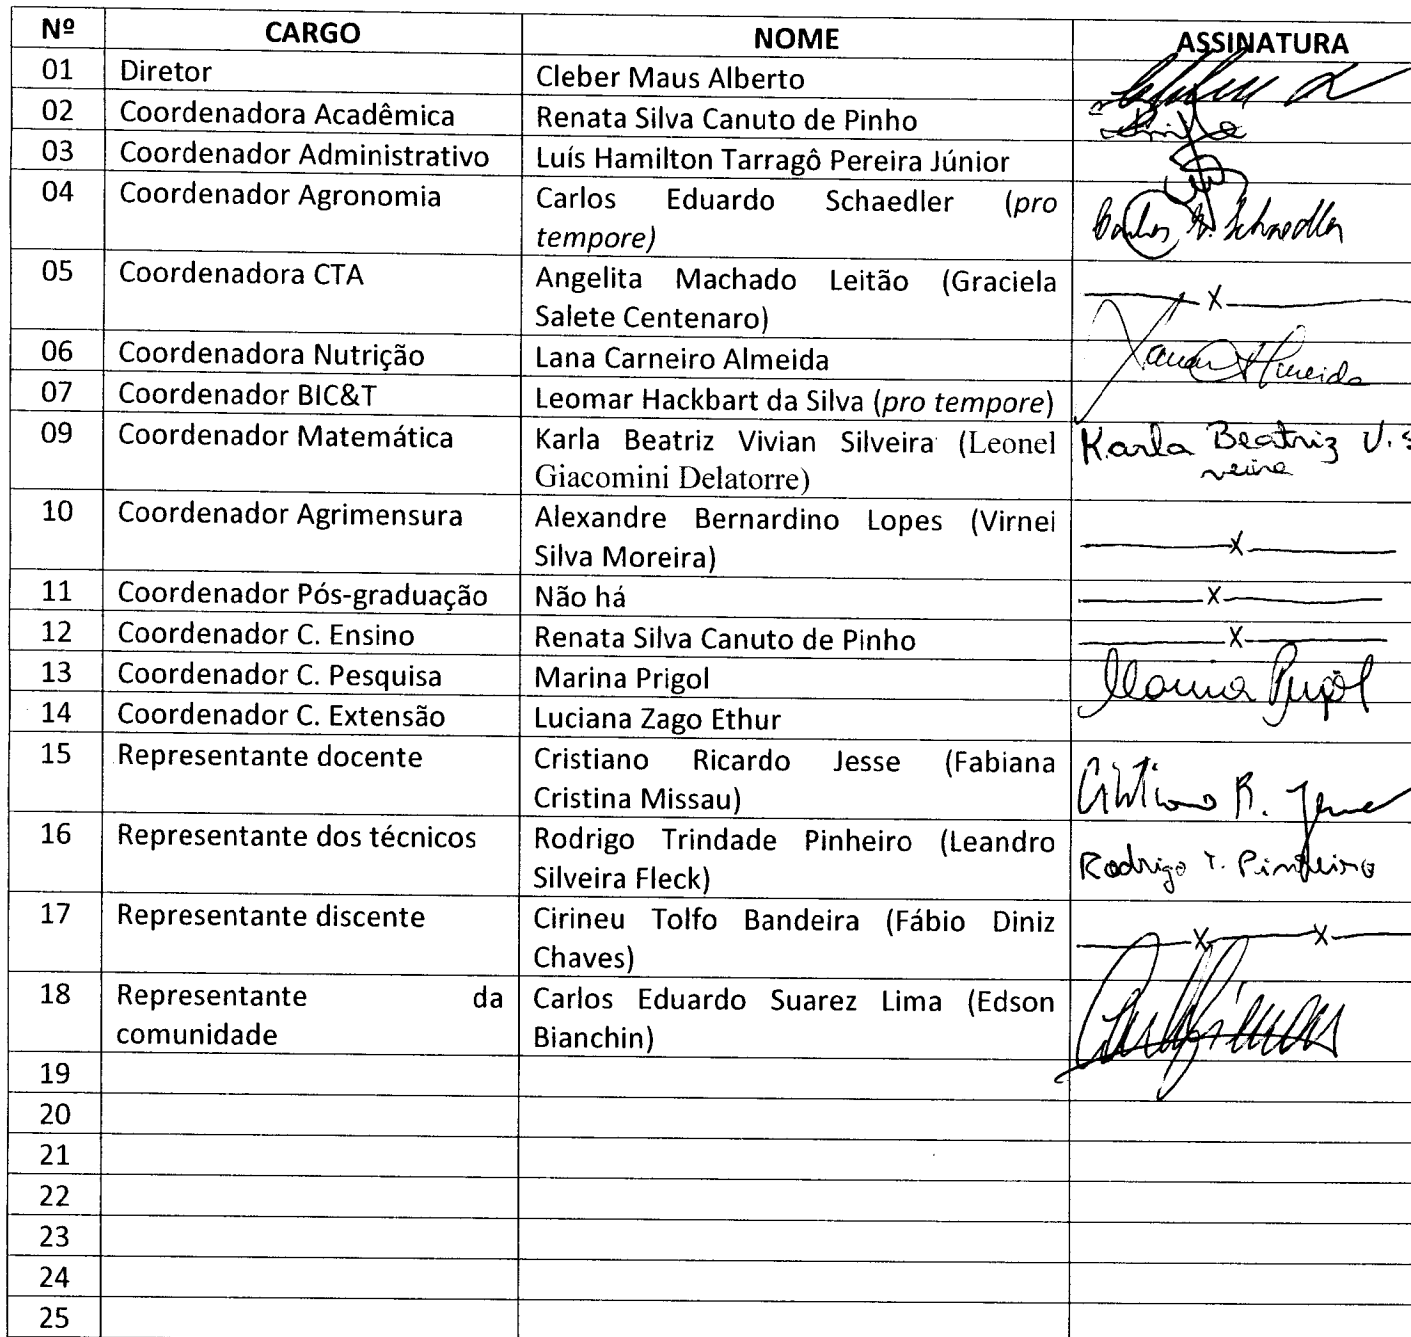 Nº CARGO NOME ASSINATURA
01 Diretor Cleber Maus Alberto
02 Coordenadora Acadêmica Renata Silva Canuto de Pinho
03 Coordenador Administrativo Luís Hamilton Tarragô Pereira Júnior
04 Coordenador Agronomia Carlos Eduardo Schaedler (pro
tempore) Carlos E. Schaedler
05 Coordenadora CTA Angelita Machado Leitão (Graciela
Salete Centenaro) X
06 Coordenadora Nutrição Lana Carneiro Almeida Lana Almeida
07 Coordenador BIC&T Leomar Hackbart da Silva (pro tempore)
09 Coordenador Matemática Karla Beatriz Vivian Silveira (Leonel Karla Beatriz V. S
Giacomini Delatorre) veira
10 Coordenador Agrimensura Alexandre Bernardino Lopes (Virnei
Silva Moreira) X
11 Coordenador Pós-graduação Não há X
12 Coordenador C. Ensino Renata Silva Canuto de Pinho X
13 Coordenador C. Pesquisa Marina Prigol Marina Prigol
14 Coordenador C. Extensão Luciana Zago Ethur
15 Representante docente Cristiano Ricardo Jesse (Fabiana
Cristina Missau) Cristiano R. Jesse
16 Representante dos técnicos Rodrigo Trindade Pinheiro (Leandro
Silveira Fleck) Rodrigo T. Pinheiro
17 Representante discente Cirineu Tolfo Bandeira (Fábio Diniz
Chaves) X X
18 Representante da Carlos Eduardo Suarez Lima (Edson
comunidade Bianchin)
19
20
21
22
23
24
25